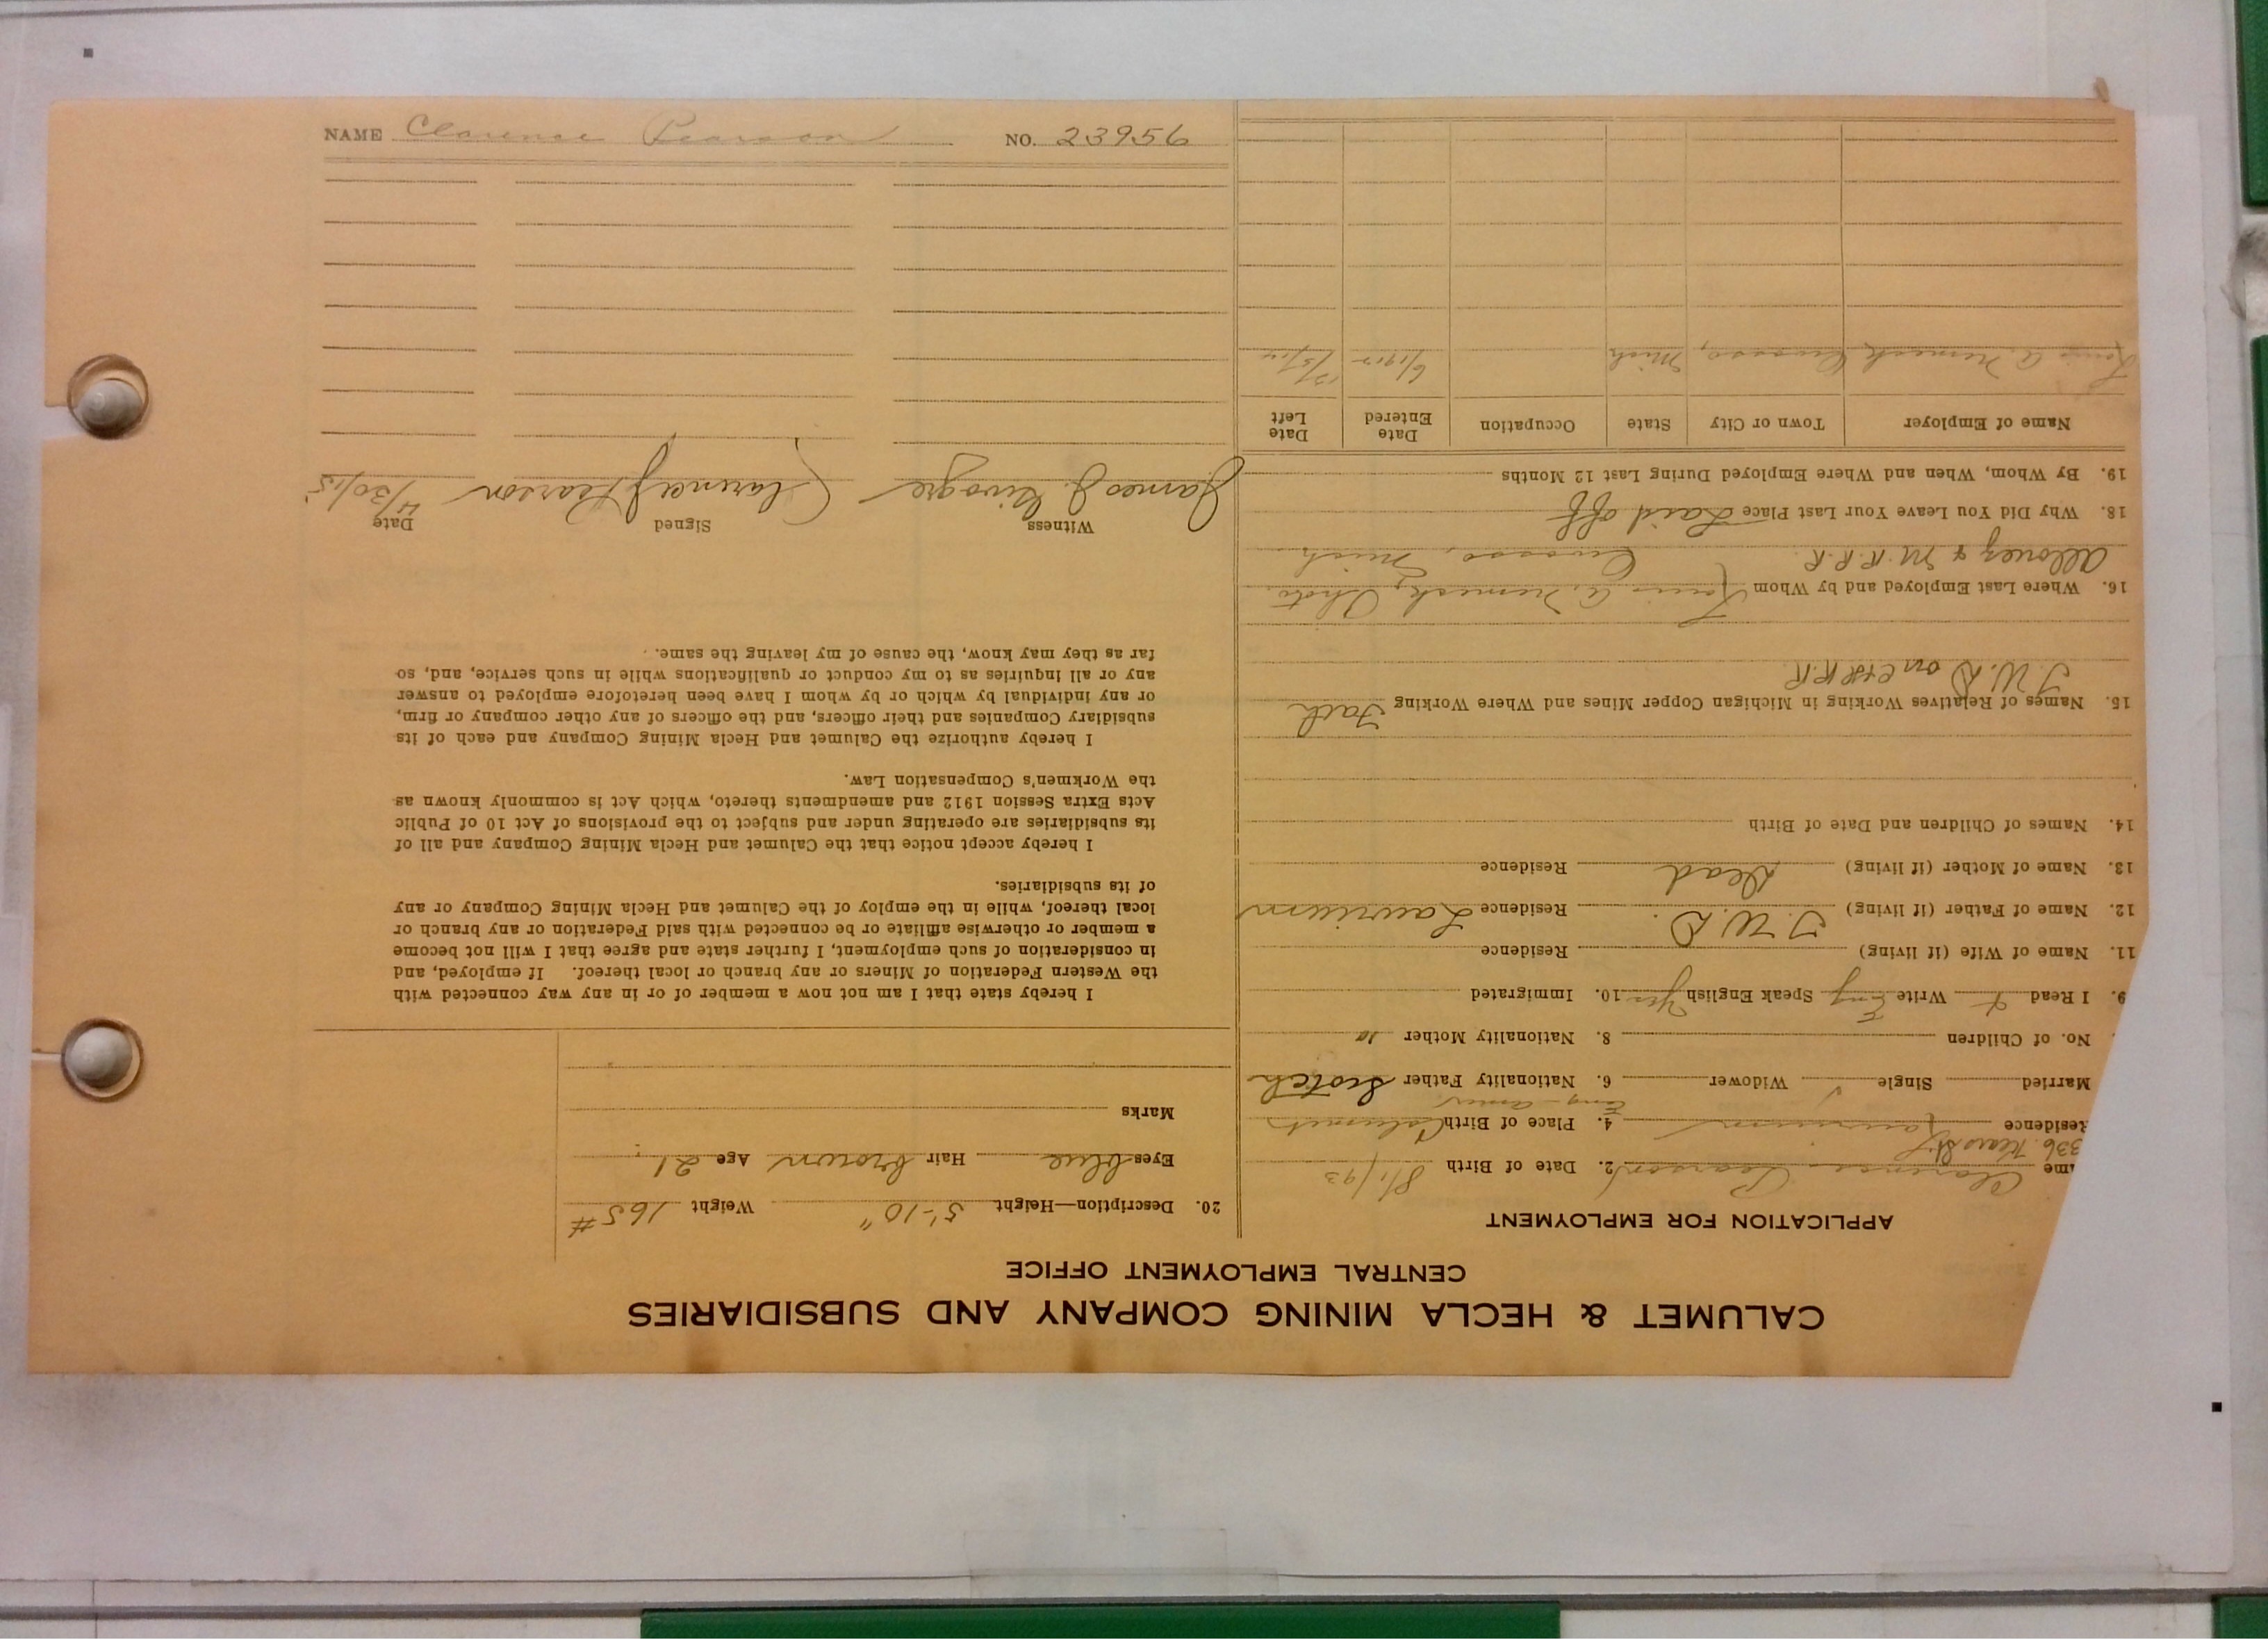 CALUMET & HECLA MINING COMPANY AND SUBSIDIARIES
CENTRAL EMPLOYMENT OFFICE
APPLICATION FOR EMPLOYMENT
ame Clarence Pearson 2. Date of Birth 8/1/93
336 Kearsl
Residence Laurium 4. Place of Birth Calumet
Eng - Amer
Married Single ✓ Widower 6. Nationality Father Scotch
No. of Children 8. Nationality Mother
9. I Read Write Eng Speak English Yes 10. Immigrated
11. Name of Wife (if living) Residence
12. Name of Father (if living) J. W. D. Residence Laurium
13. Name of Mother (if living) Dead Residence
14. Names of Children and Date of Birth
15. Names of Relatives Working in Michigan Copper Mines and Where Working Fath
J. W. D on C&H R.R
16. Where Last Employed and by Whom Photo.
Allouez & M. R. R. R. Owosso, Mich
18. Why Did You Leave Your Last Place Laid off
19. By Whom, When and Where Employed During Last 12 Months
Name of Employer Town or City State Occupation Date Entered Date Left
Owosso, Mich
20. Description—Height 5'-10" Weight 165#
Eyes blue Hair brown Age 21
Marks
I hereby state that I am not now a member of or in any way connected with
the Western Federation of Miners or any branch or local thereof. If employed, and
in consideration of such employment, I further state and agree that I will not become
a member or otherwise affiliate or be connected with said Federation or any branch or
local thereof, while in the employ of the Calumet and Hecla Mining Company or any
of its subsidiaries.
I hereby accept notice that the Calumet and Hecla Mining Company and all of
its subsidiaries are operating under and subject to the provisions of Act 10 of Public
Acts Extra Session 1912 and amendments thereto, which Act is commonly known as
the Workmen's Compensation Law.
I hereby authorize the Calumet and Hecla Mining Company and each of its
subsidiary Companies and their officers, and the officers of any other company or firm,
or any individual by which or by whom I have been heretofore employed to answer
any or all inquiries as to my conduct or qualifications while in such service, and, so
far as they may know, the cause of my leaving the same.
Witness Signed Date
James J. Clarence J Pearson 4/30/15
NAME Clarence Pearson NO. 23956